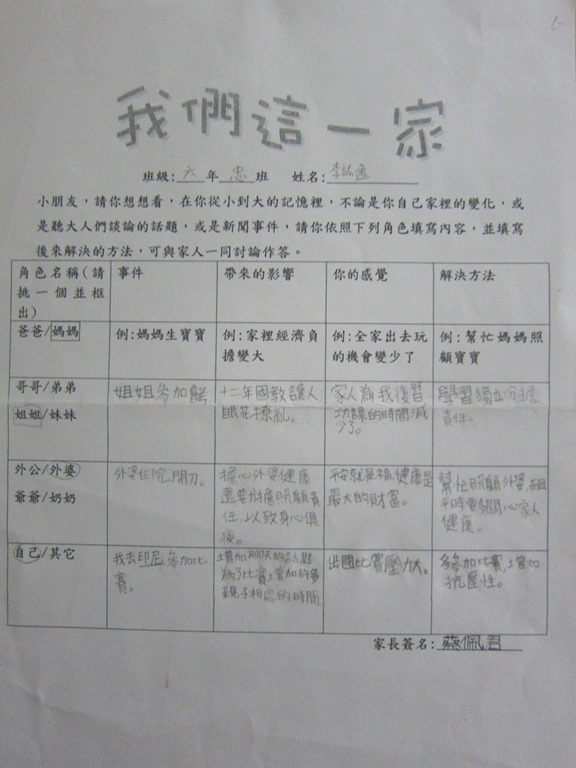 6
我們這一家
班級:六 年 忠 班 姓名:李
小朋友，請你想想看，在你從小到大的記憶裡，不論是你自己家裡的變化，或
是聽大人們談論的話題，或是新聞事件，請你依照下列角色填寫內容，並填寫
後來解決的方法，可與家人一同討論作答。
角色名稱(請挑一個並框出) 事件 帶來的影響 你的感覺 解決方法
爸爸/媽媽 例:媽媽生寶寶 例:家裡經濟負擔變大 例:全家出去玩的機會變少了 例:幫忙媽媽照顧寶寶
哥哥/弟弟
姐姐/妹妹
姐姐參加
十二年國教讓人
眼花撩亂。
家人為我復習
功課的時間減
少了。
學習獨立分擔
責任。
外公/外婆
爺爺/奶奶
外婆住院開刀。
擔心外婆健康
還要分擔照顧責
任，以致身心俱
疲。
平安就是福，健康是
最大的財富。
幫忙照顧外婆，
平時要多關心家人
健康。
自己/其它
我去印尼參加比
賽。
增加聊天的話題
為了比賽增加的多
親子相處的時間
出國比賽壓力大。
多參加比賽，增加
抗壓性。
家長簽名:蔡佩君